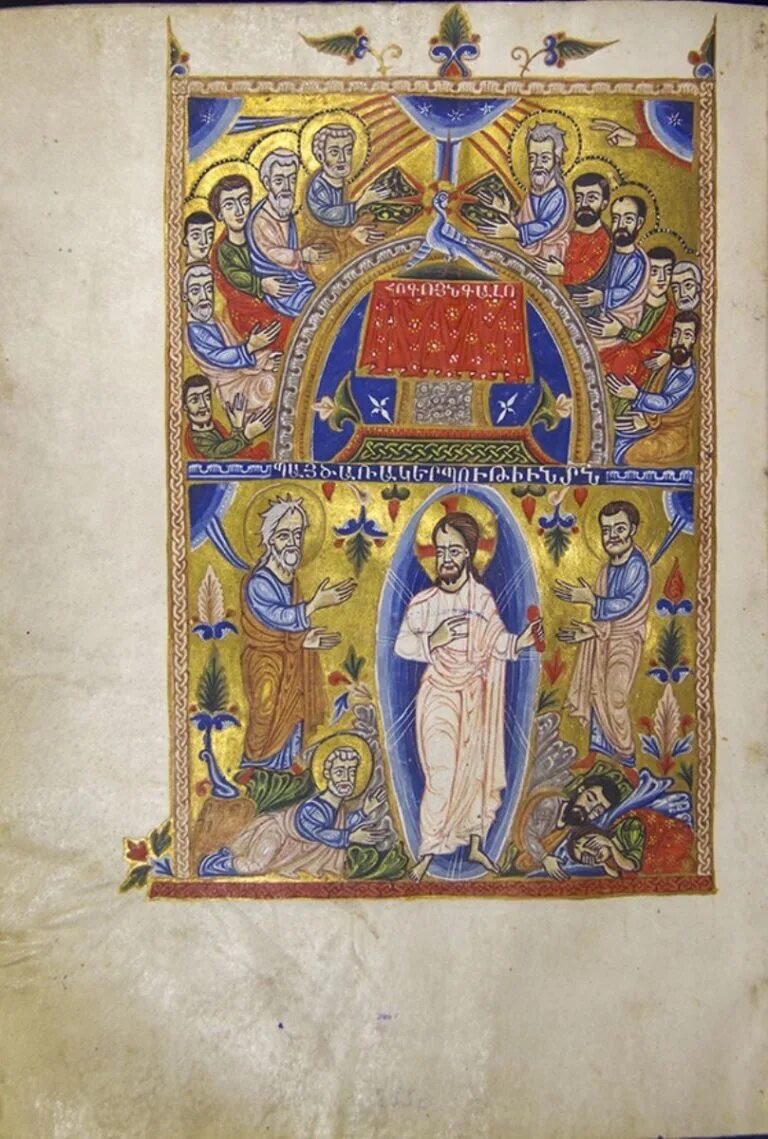 ՀՈԳՈՅՆԳԱԼՈ
ՊԱՅԾԱՌԱԿԵՐՊՈՒԹԻՒՆՏՆ